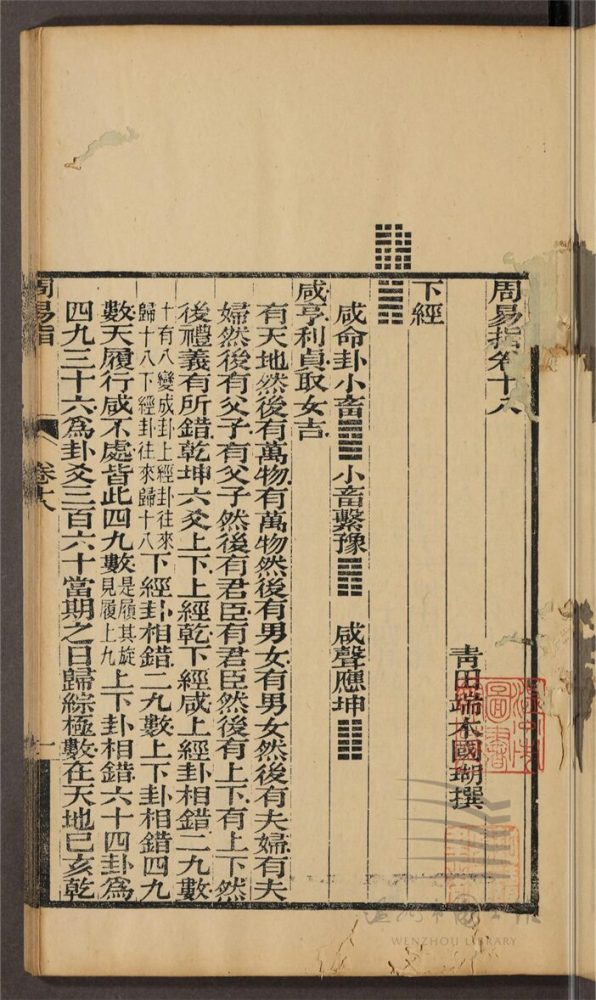 周易指卷十八
青田端木國瑚撰
下經
咸命卦小畜䷈小畜繫豫䷏咸聲應坤䷁
咸亨利貞取女吉
有天地然後有萬物有萬物然後有男女有男女然後有夫婦有夫
婦然後有父子有父子然後有君臣有君臣然後有上下有上下然
後禮義有所錯乾坤六爻上下上經乾下經咸上經卦相錯二九數
十有八變成卦上經卦往來
歸十八下經卦往來歸十八
下經卦相錯二九數上下卦相錯四九
數天履行咸不處皆此四九數
是履其旋
見履上九
上下卦相錯六十四卦爲
四九三十六爲卦爻三百六十當期之日歸綜極數在天地巳亥乾
周易指
卷十八
一
WENZHOU LIBRARY